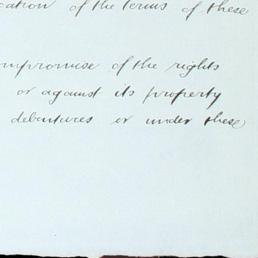 cation of the terms of these
ompromise of the rights
or against its property
debentures or under these